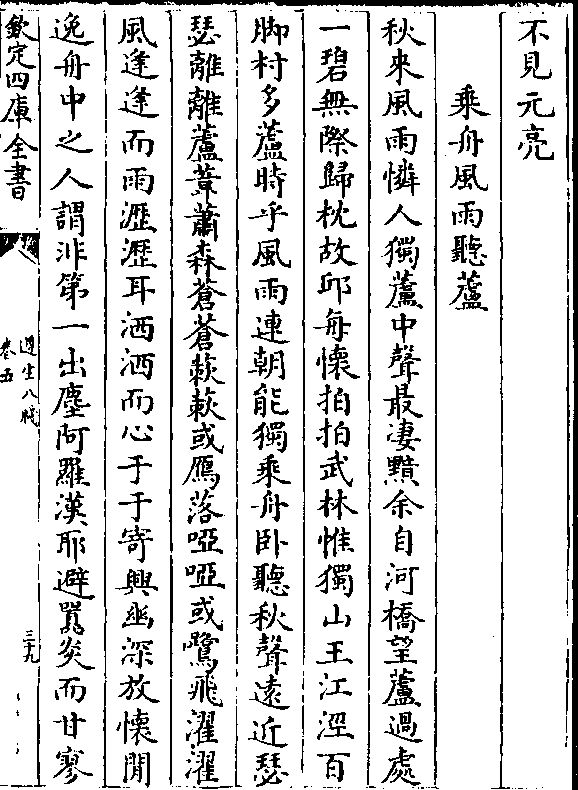 不見元亮
乘舟風雨聽蘆
秋來風雨憐人獨蘆中聲最淒黯余自河橋望蘆過處
一碧無際歸枕故邱每懷拍拍武林惟獨山王江涇百
脚村多蘆時乎風雨連朝能獨乘舟卧聽秋聲遠近瑟
瑟離離蘆葦蕭森蒼蒼蔌蔌或鴈落啞啞或鷺飛濯濯
風逢逢而雨瀝瀝耳洒洒而心于于寄興幽深放懷閒
逸舟中之人謂非第一出塵阿羅漢耶避囂炎而甘寥
欽定四庫全書
遵生八牋
卷五
三十九